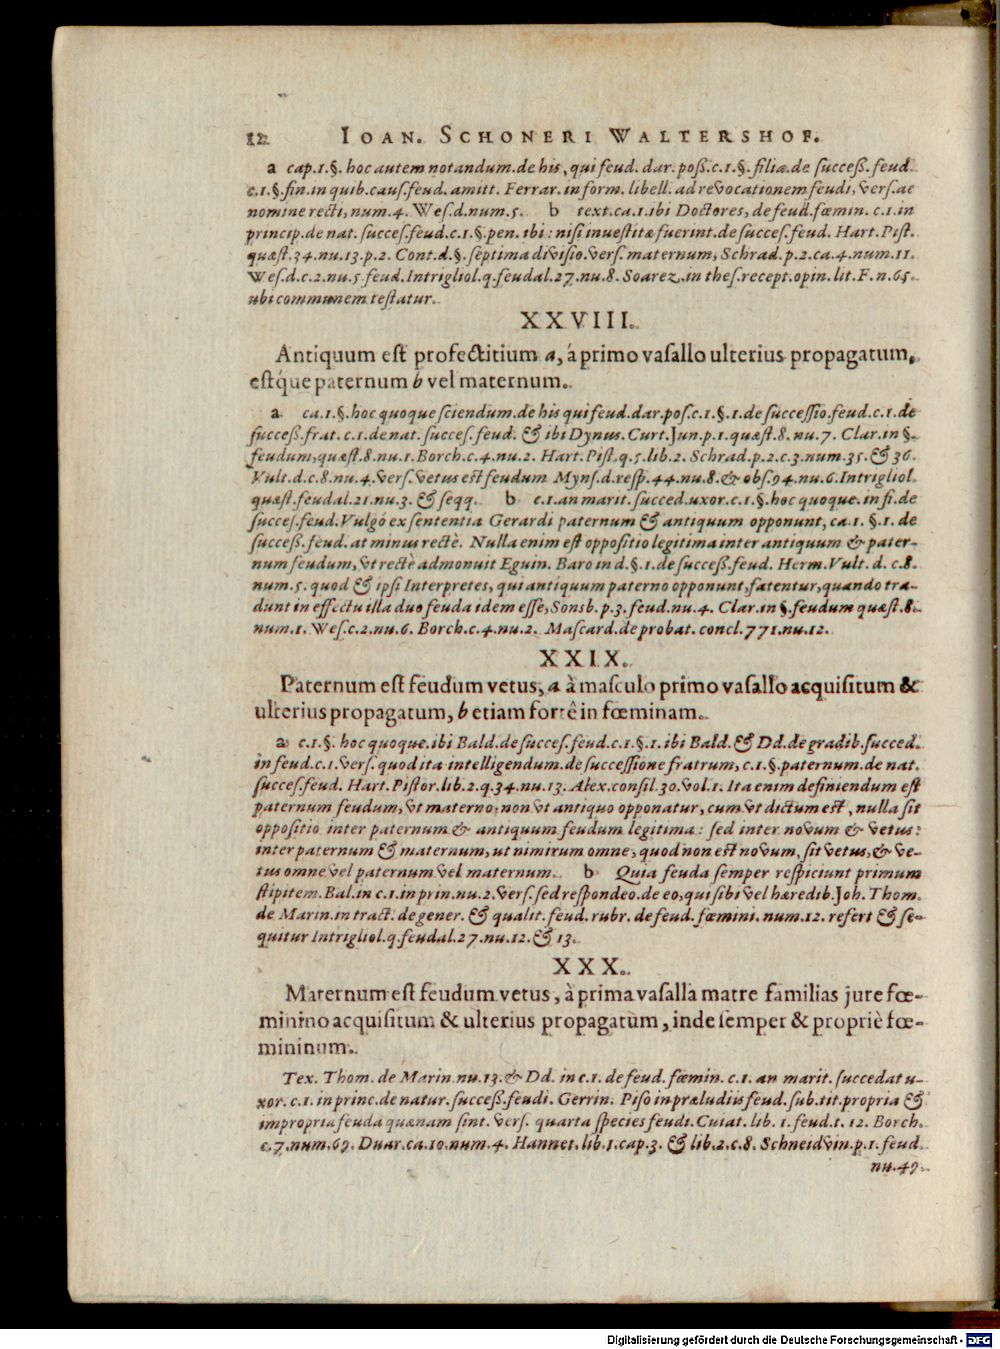 12 IOAN. SCHONERI WALTERSHOF.
a cap.1.§. hoc autem notandum.de his, qui feud. dar. poß.c.1.§. filiæ.de succeß.feud.
c.1.§.fin.in quib.caus.feud. amitt. Ferrar. in form. libell. ad revocationem feudi, vers.ac
nomine recti, num.4. Wes.d.num.5. b text.ca.1.ibi Doctores, de feud.fœmin. c.1.in
princip.de nat. succes.feud.c.1.§.pen. ibi: nisi investitæ fuerint.de succes.feud. Hart.Pist.
quæst.34.nu.13.p.2. Cont.d.§. septima divisio.vers. maternum, Schrad.p.2.ca.4.num.11.
Wes.d.c.2.nu.5.feud.Intrigliol.q.feudal.27.nu.8. Soarez.in thes.recept.opin.lit.F.n.65.
ubi communem testatur.
XXVIII.
Antiquum est profectitium a, á primo vasallo ulterius propagatum,
estq́ue paternum b vel maternum.
a ca.1.§.hoc quoque sciendum.de his qui feud.dar.pos.c.1.§.1.de successio.feud.c.1.de
succeß.frat. c.1.de nat. succes.feud. & ibi Dynus. Curt.Jun.p.1.quæst.8. nu.7. Clar.in §.
feudum,quæst.8.nu.1.Borch.c.4.nu.2. Hart. Pist.q.5.lib.2. Schrad.p.2.c.3.num.35.& 36.
Vult.d.c.8.nu.4.vers.vetus est feudum Myns.d.resp.44.nu.8.& obs.94.nu.6.Intrigliol.
quæst.feudal.21.nu.3. & seqq. b c.1.an marit.succed.uxor.c.1.§.hoc quoque.in fi.de
succes.feud.Vulgó ex sententia Gerardi paternum & antiquum opponunt, ca.1. §.1.de
succeß.feud. at minus rectè. Nulla enim est oppositio legitima inter antiquum & pater-
num feudum, vt rectè admonuit Eguin. Baro in d.§.1.de succeß.feud. Herm.Vult. d. c.8.
num.5. quod & ipsi Interpretes, qui antiquum paterno opponunt,fatentur,quando tra-
dunt in effectu illa duo feuda idem esse, Sonsb.p.3.feud.nu.4. Clar.in §.feudum quæst.8.
num.1. Wes.c.2.nu.6. Borch.c.4.nu.2. Mascard.de probat. concl.771.nu.12.
XXIX.
Paternum est feudum vetus, a à masculo primo vasallo acquisitum &
ulterius propagatum, b etiam fortê in fœminam.
a c.1.§. hoc quoque.ibi Bald.de succes.feud.c.1.§.1.ibi Bald.& Dd.de gradib.succed.
in feud.c.1.vers.quod ita intelligendum.de successione fratrum, c.1.§.paternum.de nat.
succes.feud. Hart.Pistor.lib.2.q.34.nu.13. Alex.consil.30.vol.1. Ita enim definiendum est
paternum feudum, vt materno, non vt antiquo opponatur, cum vt dictum est, nulla sit
oppositio inter paternum & antiquum feudum legitima: sed inter novum & vetus:
inter paternum & maternum, ut nimirum omne, quod non est novum, sit vetus, & ve-
tus omne vel paternum vel maternum. b Quia feuda semper respiciunt primum
stipitem.Bal.in c.1.in prin.nu.2.vers.sed respondeo.de eo,qui sibi vel hæredib.Joh. Thom.
de Marin.in tract. de gener. & qualit.feud.rubr. de feud. fœmini. num.12. refert & se-
quitur Intrigliol.q.feudal.27.nu.12.& 13.
XXX.
Maternum est feudum vetus, à prima vasalla matre familias jure fœ-
minino acquisitum & ulterius propagatum, inde semper & propriè fœ-
mininum.
Tex. Thom. de Marin.nu.13.& Dd. in c.1. de feud.fœmin. c.1. an marit. succedat u-
xor. c.1. in princ.de natur.succeß.feudi. Gerrin. Piso in præludiis feud.sub.tit.propria &
impropria feuda quænam sint. vers. quarta species feudi.Cuiat.lib. 1.feud.t. 12. Borch.
c.7.num.69. Duar.ca.10.num.4. Hannet.lib.1.cap.3. & lib.2.c.8. Schneidvin.p.1.feud.
nu.49.
Digitalisierung gefördert durch die Deutsche Forschungsgemeinschaft - DFG